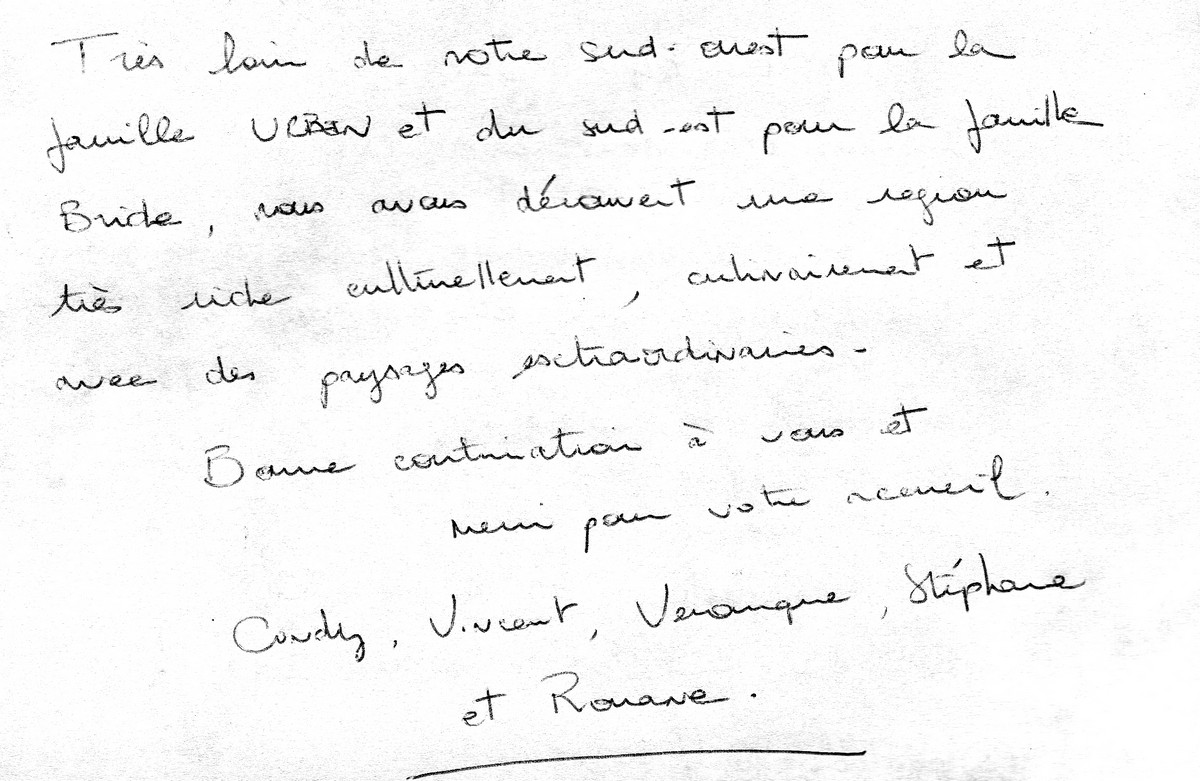 Très loin de notre sud-ouest pour la
famille URBIN et du sud-est pour la famille
Bride, nous avons découvert une region
très riche culturellement, culinairement et
avec des paysages extraordinaires.
Bonne continuation à vous et
merci pour votre accueil.
Cindy, Vincent, Veronique, Stéphane
et Romane.